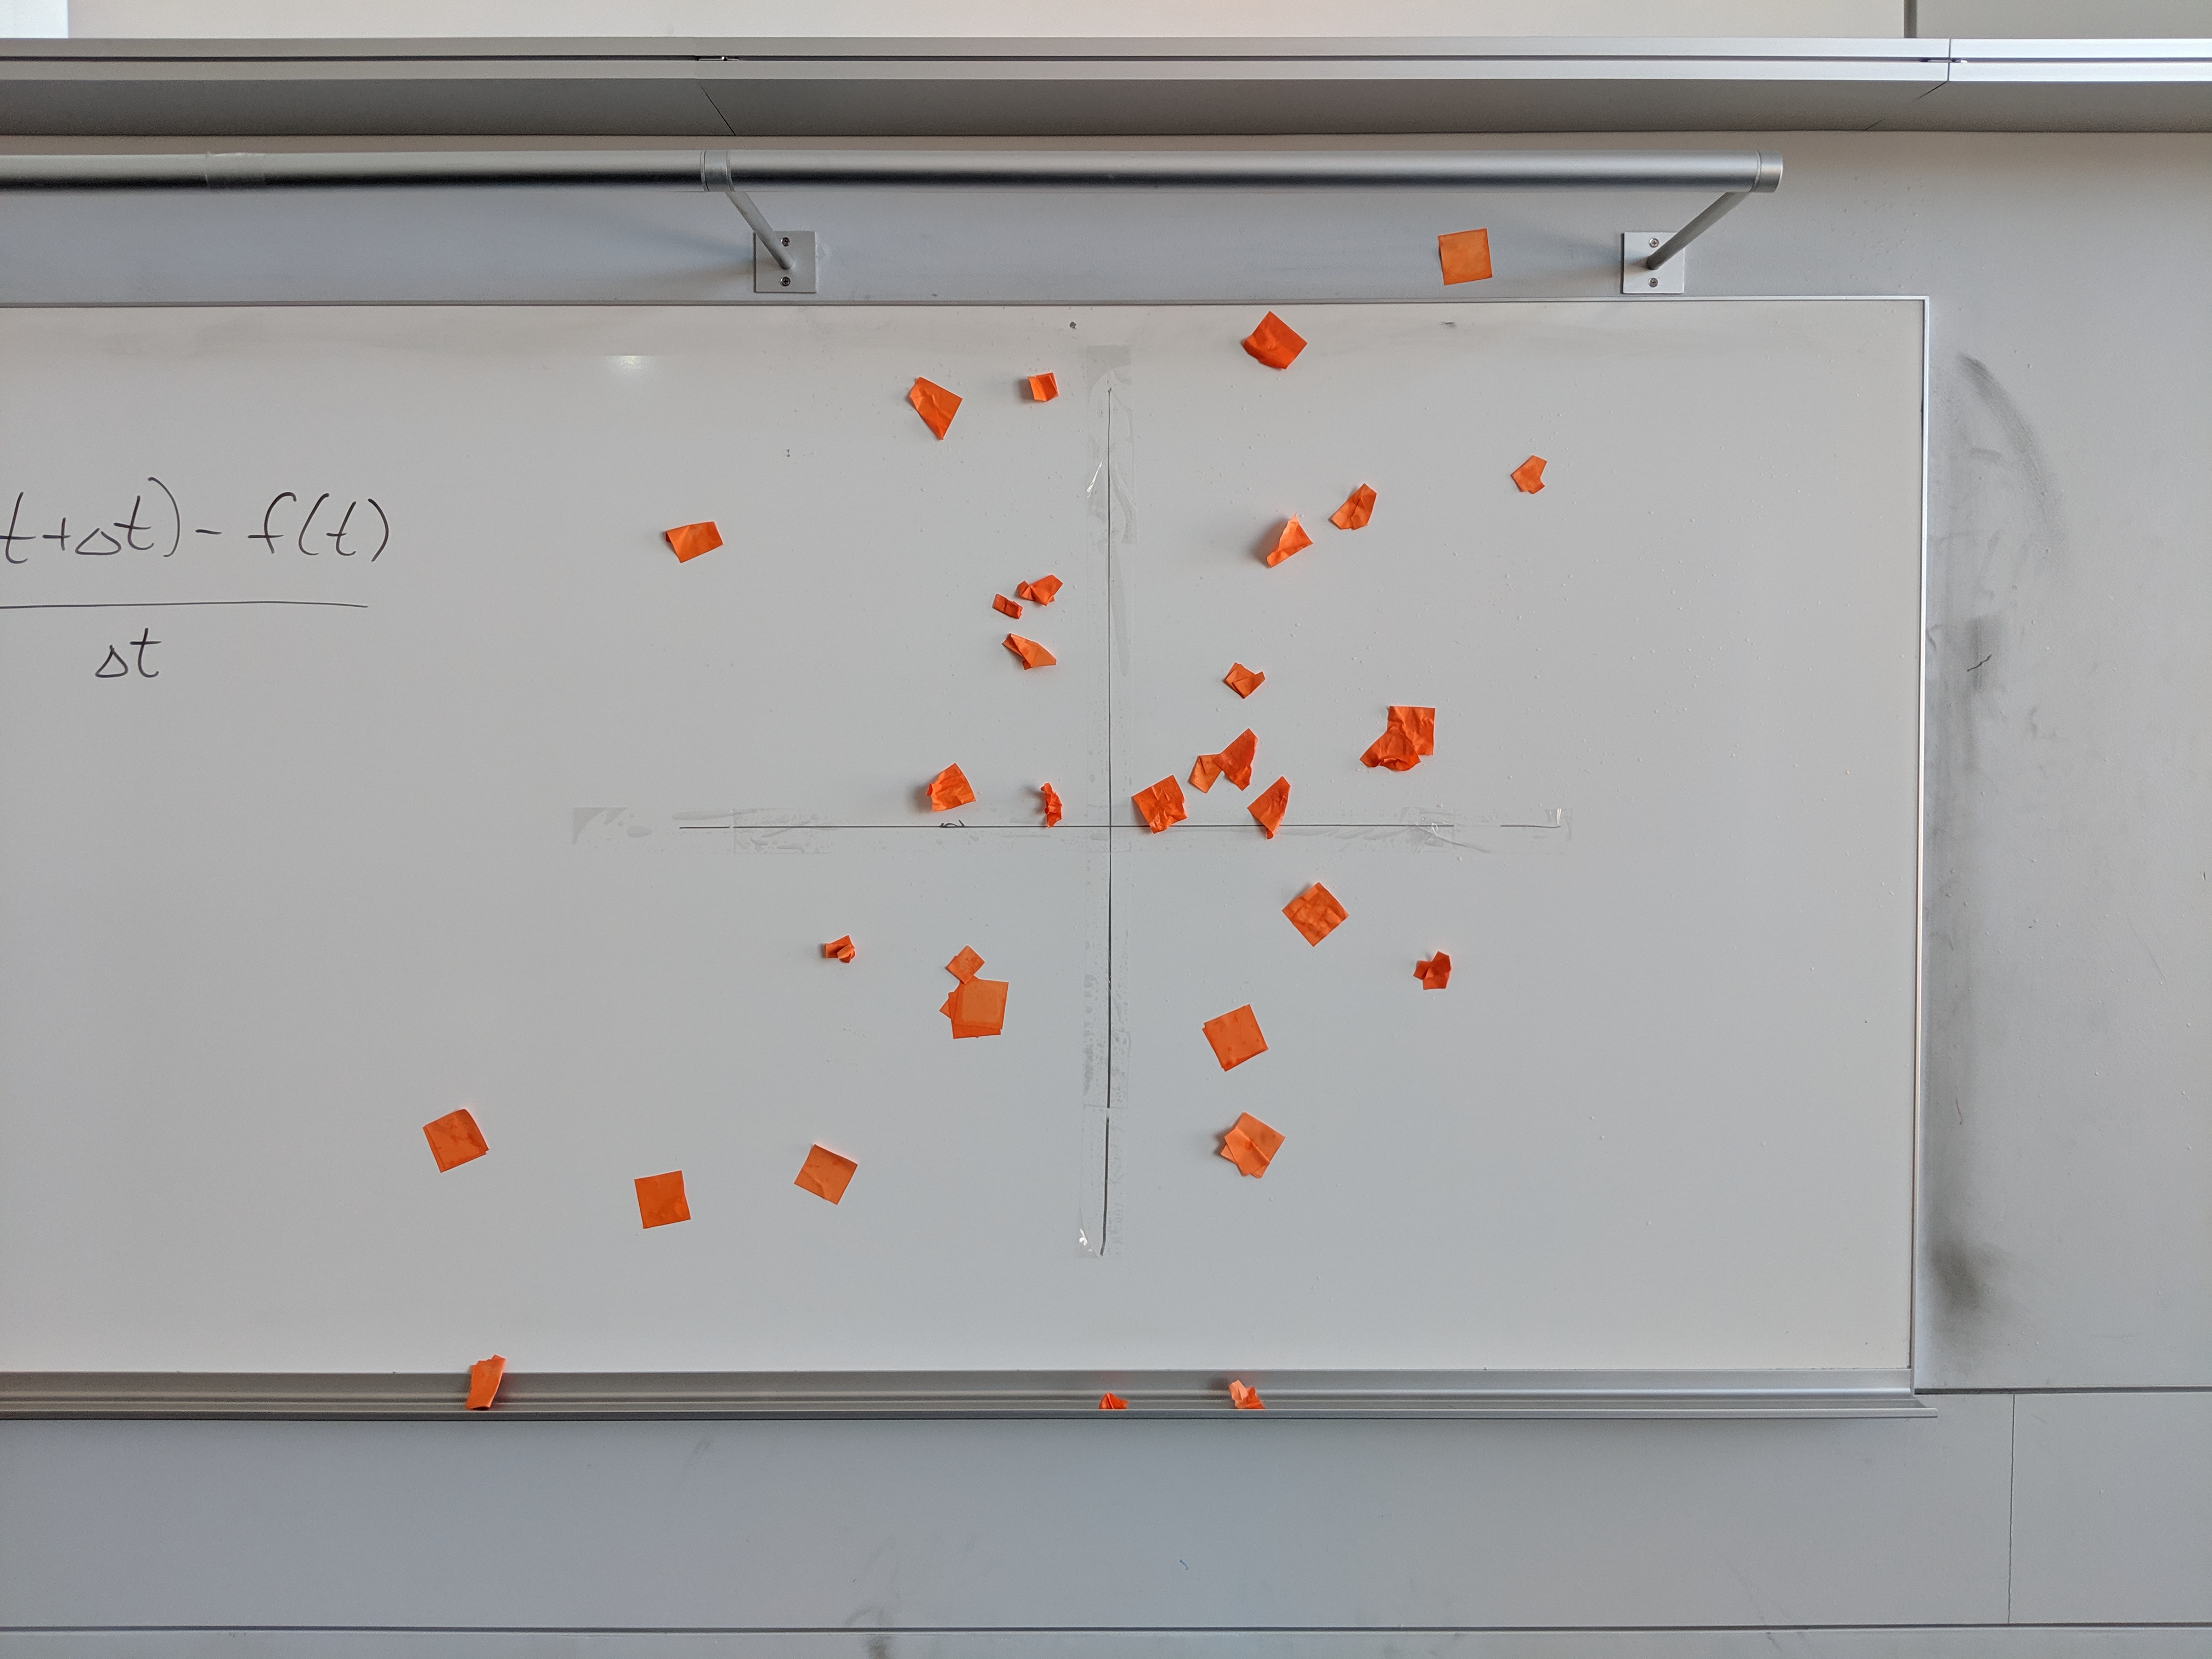 t+Δt) - f(t)
Δt